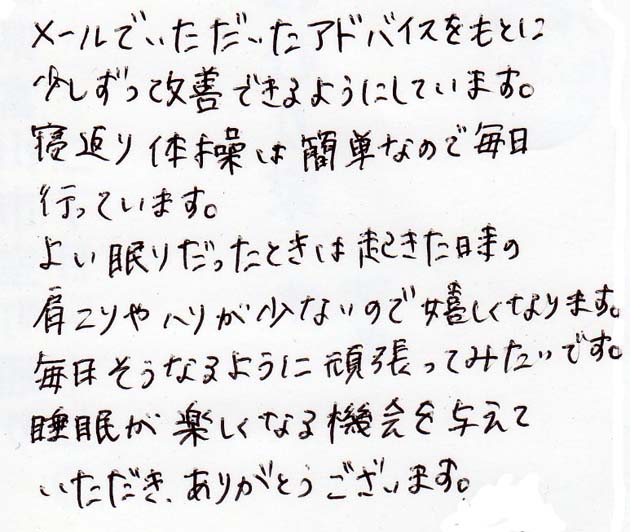 メールでいただいたアドバイスをもとに
少しずつ改善できるようにしています。
寝返り体操は簡単なので毎日
行っています。
よい眠りだったときは起きた時の
肩こりやハリが少ないので嬉しくなります。
毎日そうなるように頑張ってみたいです。
睡眠が楽しくなる機会を与えて
いただき、ありがとうございます。